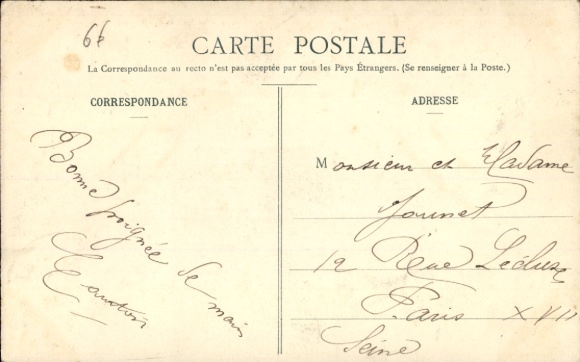 66
CARTE POSTALE
La Correspondance au recto n'est pas acceptée par tous les Pays Étrangers. (Se renseigner à la Poste.)
CORRESPONDANCE
Bonne poignée de main
ADRESSE
Monsieur et Madame
12 Rue Lécluse
Paris XVII
Seine